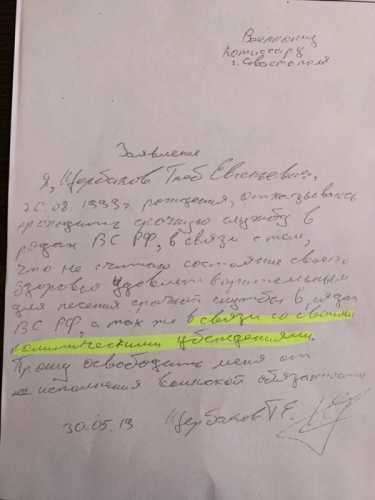 Военному
Комиссару
г. Севастополя
Заявление
Я, Щербаков Глеб Евгеньевич,
26.08.1999г. рождения, отказываюсь
проходить срочную службу в
рядах ВС РФ, в связи с тем,
что не считаю состояние своего
здоровья удовлетворительным
для несения срочной службы в рядах
ВС РФ, а так же в связи со своими
политическими убеждениями.
Прошу освободить меня от
исполнения воинской обязанности
30.05.19 Щербаков Г.Е.